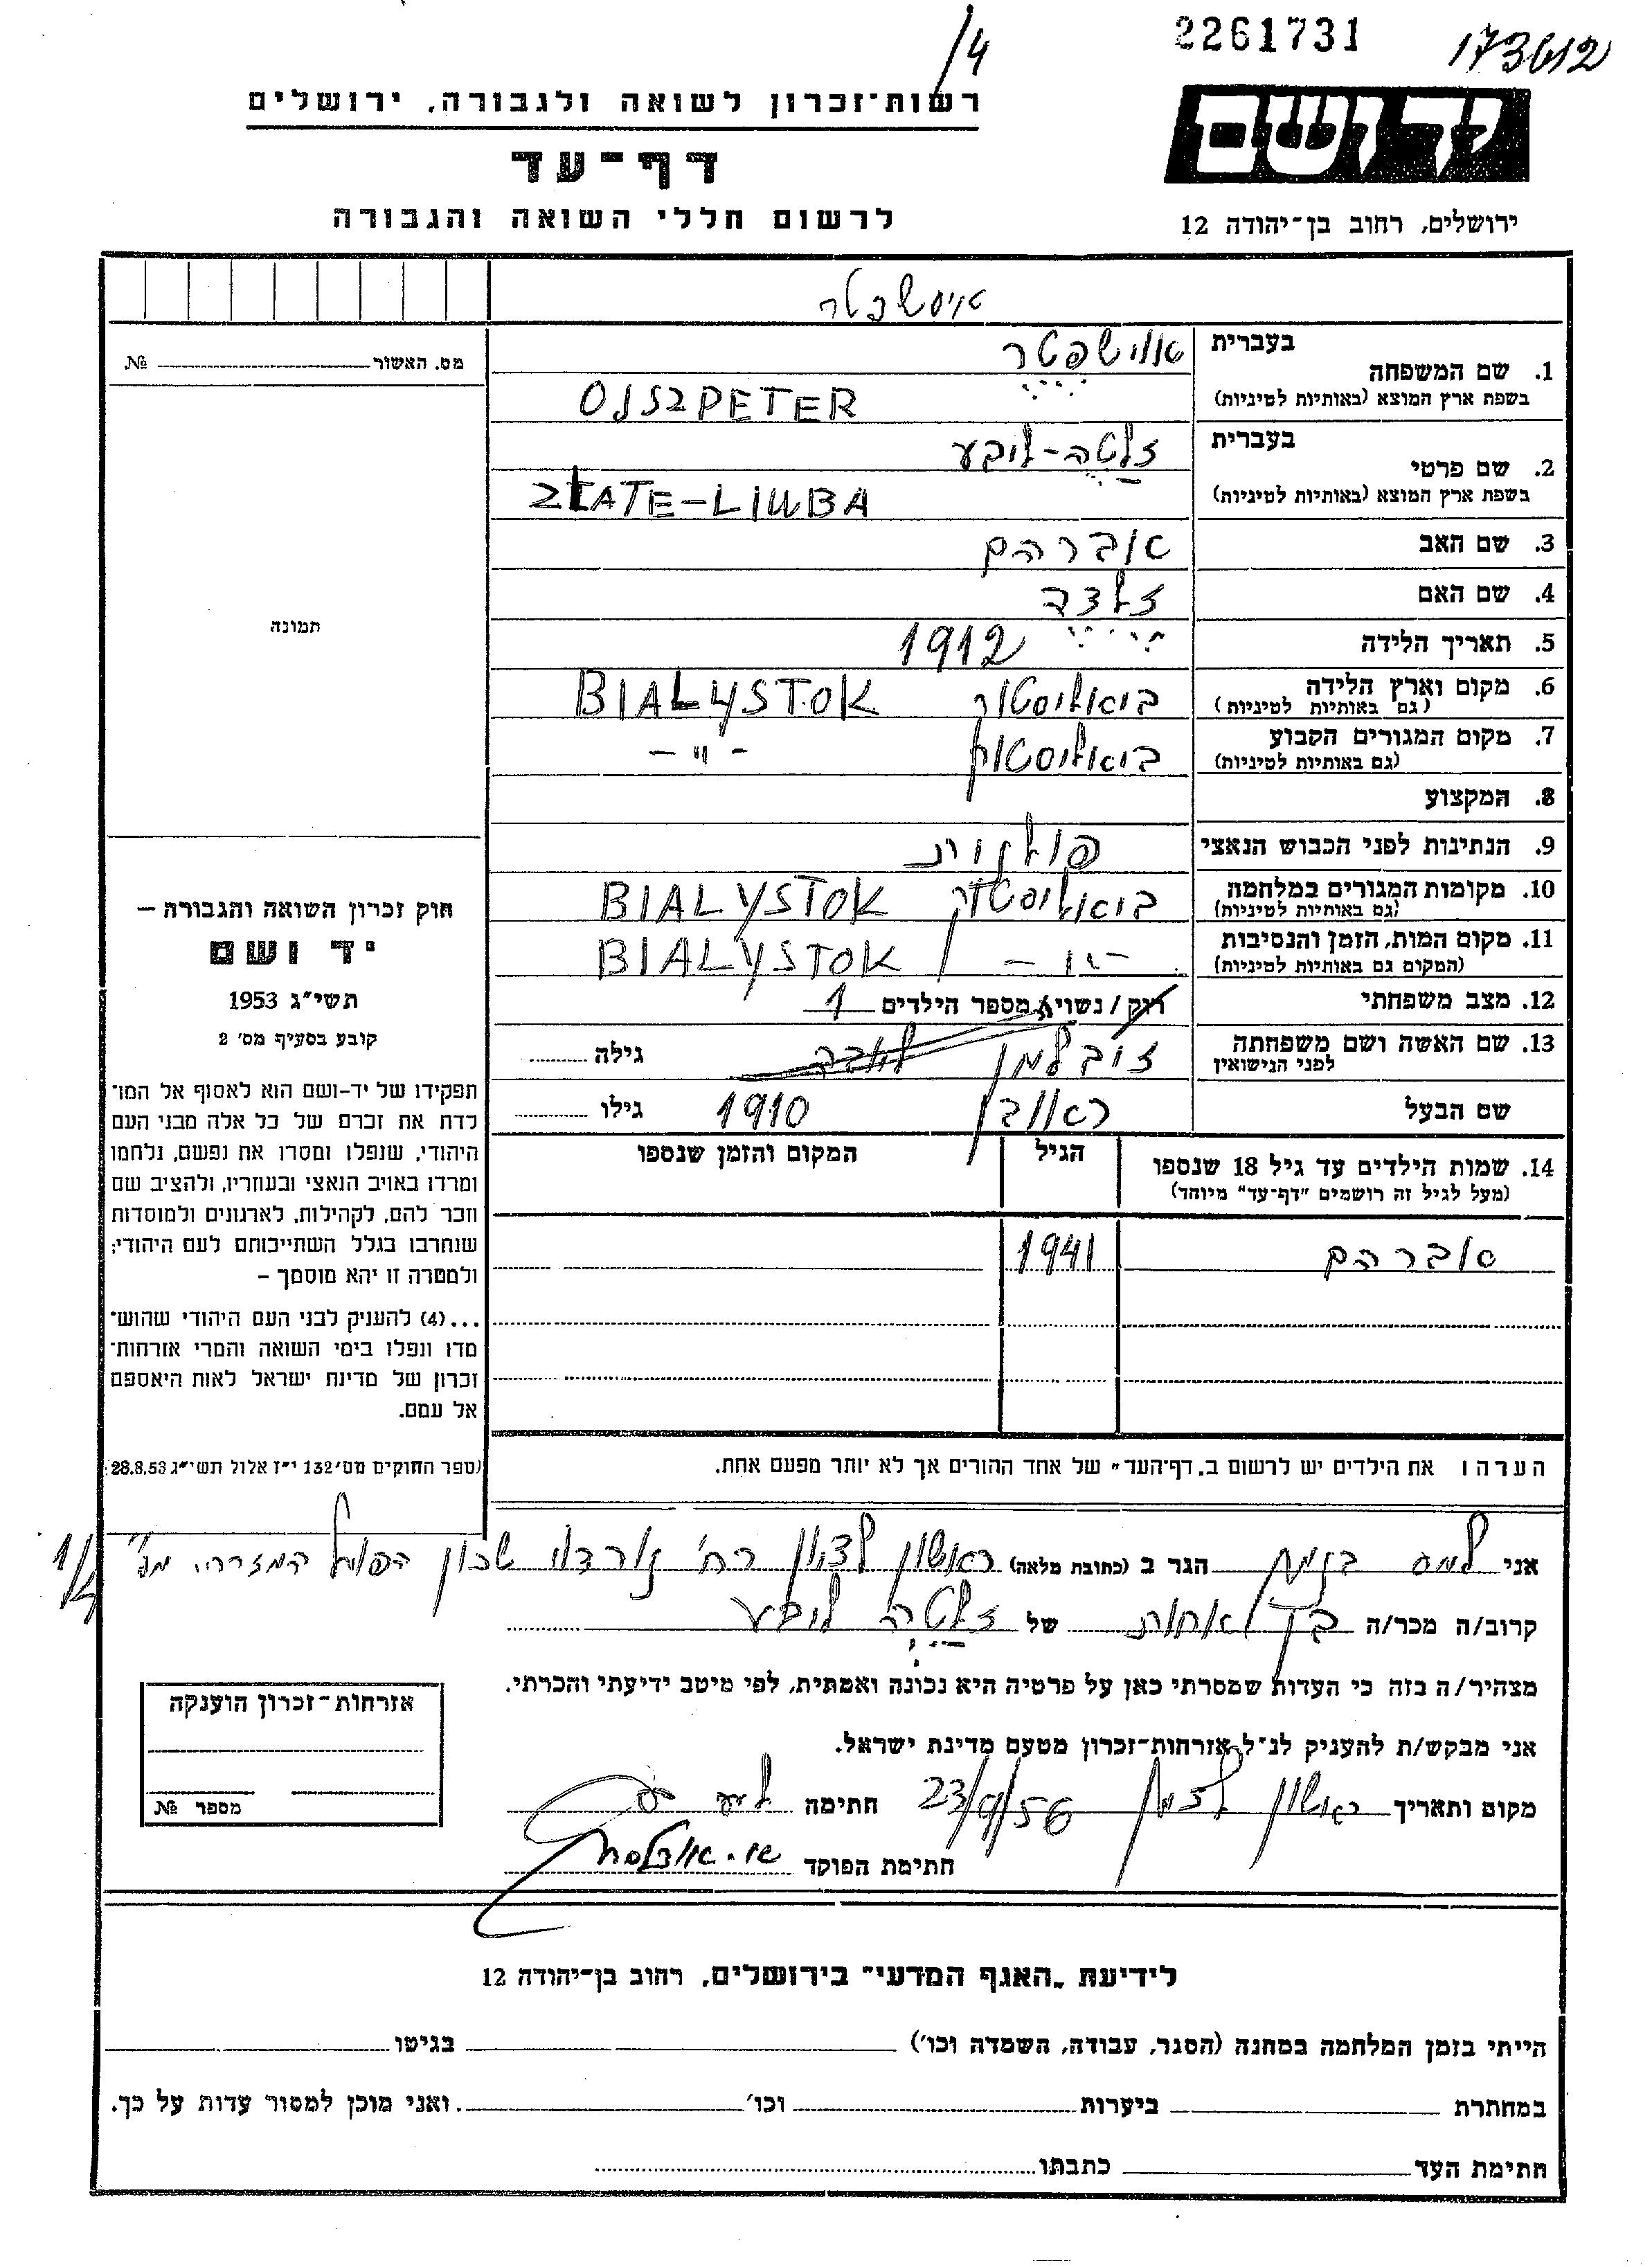 2261731
173612
1/4
יד ושם
ירושלים, רחוב בן־יהודה 12
רשות־זכרון לשואה ולגבורה, ירושלים
דף־עד
לרשום חללי השואה והגבורה
אוישפטר
1. שם המשפחה
בעברית אוישפטר
בשפת ארץ המוצא (באותיות לטיניות) OJSZPETER
2. שם פרטי
בעברית זלטה-ליבע
בשפת ארץ המוצא (באותיות לטיניות) ZŁATE-LIUBA
3. שם האב אברהם
4. שם האם זלדה
5. תאריך הלידה 1912
6. מקום וארץ הלידה ביאליסטוק BIALYSTOK
(גם באותיות לטיניות)
7. מקום המגורים הקבוע ביאליסטוק - " -
(גם באותיות לטיניות)
8. המקצוע
9. הנתינות לפני הכבוש הנאצי פולנית
10. מקומות המגורים במלחמה ביאליסטוק BIALYSTOK
(גם באותיות לטיניות)
11. מקום המות, הזמן והנסיבות - " - BIALYSTOK
(המקום גם באותיות לטיניות)
12. מצב משפחתי רוק / נשוי/א מספר הילדים 1
13. שם האשה ושם משפחתה גילה
לפני הנישואין
שם הבעל ראובן 1910 גילו
14. שמות הילדים עד גיל 18 שנספו הגיל המקום והזמן שנספו
(מעל לגיל זה רושמים "דף-עד" מיוחד)
אברהם 1941
הערה ו את הילדים יש לרשום ב„דף־העד" של אחד ההורים אך לא יותר מפעם אחת.
מס. האשור №
תמונה
חוק זכרון השואה והגבורה –
יד ושם
תשי"ג 1953
קובע בסעיף מס׳ 2
תפקידו של יד-ושם הוא לאסוף אל המו־
לדת את זכרם של כל אלה מבני העם
היהודי, שנפלו ומסרו את נפשם, נלחמו
ומרדו באויב הנאצי ובעוזריו, ולהציב שם
וזכר להם, לקהילות, לארגונים ולמוסדות
שנחרבו בגלל השתייכותם לעם היהודי;
ולמטרה זו יהא מוסמך –
...(4) להעניק לבני העם היהודי שהוש־
מדו ונפלו בימי השואה והמרי אזרחות־
זכרון של מדינת ישראל לאות היאספם
אל עמם.
(ספר החוקים מס׳ 132 י"ז אלול תשי"ג 28.8.53)
אני הגר ב (כתובת מלאה) ראשון לציון רח׳ שכון הפועל המזרחי 1/4
קרוב/ה מכר/ה של זלטה ליבע
מצהיר/ה בזה כי העדות שמסרתי כאן על פרטיה היא נכונה ואמתית, לפי מיטב ידיעתי והכרתי.
אני מבקש/ת להעניק לנ״ל אזרחות־זכרון מטעם מדינת ישראל.
מקום ותאריך ראשון לציון 23/9/56 חתימה
חתימת הפוקד
אזרחות־זכרון הוענקה
מספר №
לידיעת „האגף המדעי" בירושלים, רחוב בן־יהודה 12
הייתי בזמן המלחמה במחנה (הסגר, עבודה, השמדה וכו׳) בגיטו
במחתרת ביערות וכו׳ ואני מוכן למסור עדות על כך.
חתימת העד כתבתו